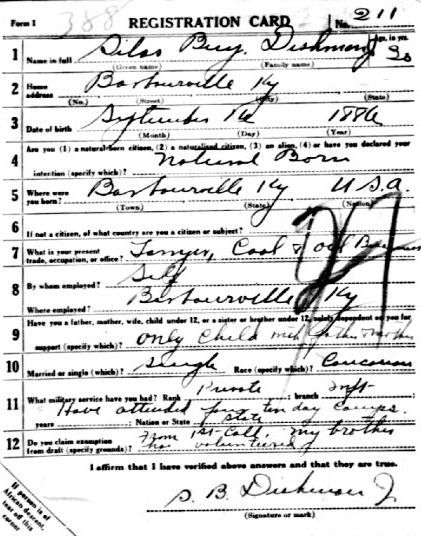 Form 1 388 REGISTRATION CARD No. 211
1 Name in full Silas Benj. Dishman Jr Age, in yrs. 30
(Given name) (Family name)
2 Home address Barbourville Ky
(No.) (Street) (City) (State)
3 Date of birth September 1886
(Month) (Day) (Year)
Are you (1) a natural-born citizen, (2) a naturalized citizen, (3) an alien, (4) or have you declared your
4 intention (specify which)? Natural Born
5 Where were you born? Barbourville Ky U.S.A.
(Town) (State) (Nation)
6 If not a citizen, of what country are you a citizen or subject?
7 What is your present trade, occupation, or office? Lawyer, Coal & Oil Business
8 By whom employed? Self
Where employed? Barbourville Ky
Have you a father, mother, wife, child under 12, or a sister or brother under 12, solely dependent on you for
9 support (specify which)? only child
10 Married or single (which)? Single Race (specify which)? Caucasian
11 What military service have you had? Rank Private ; branch Inft
years Have attended ten day camps. ; Nation or State State
12 Do you claim exemption from draft (specify grounds)? From 1st Call, my brother
has volunteered
I affirm that I have verified above answers and that they are true.
S. B. Dishman Jr
(Signature or mark)
If person is of
African descent,
tear off this
corner